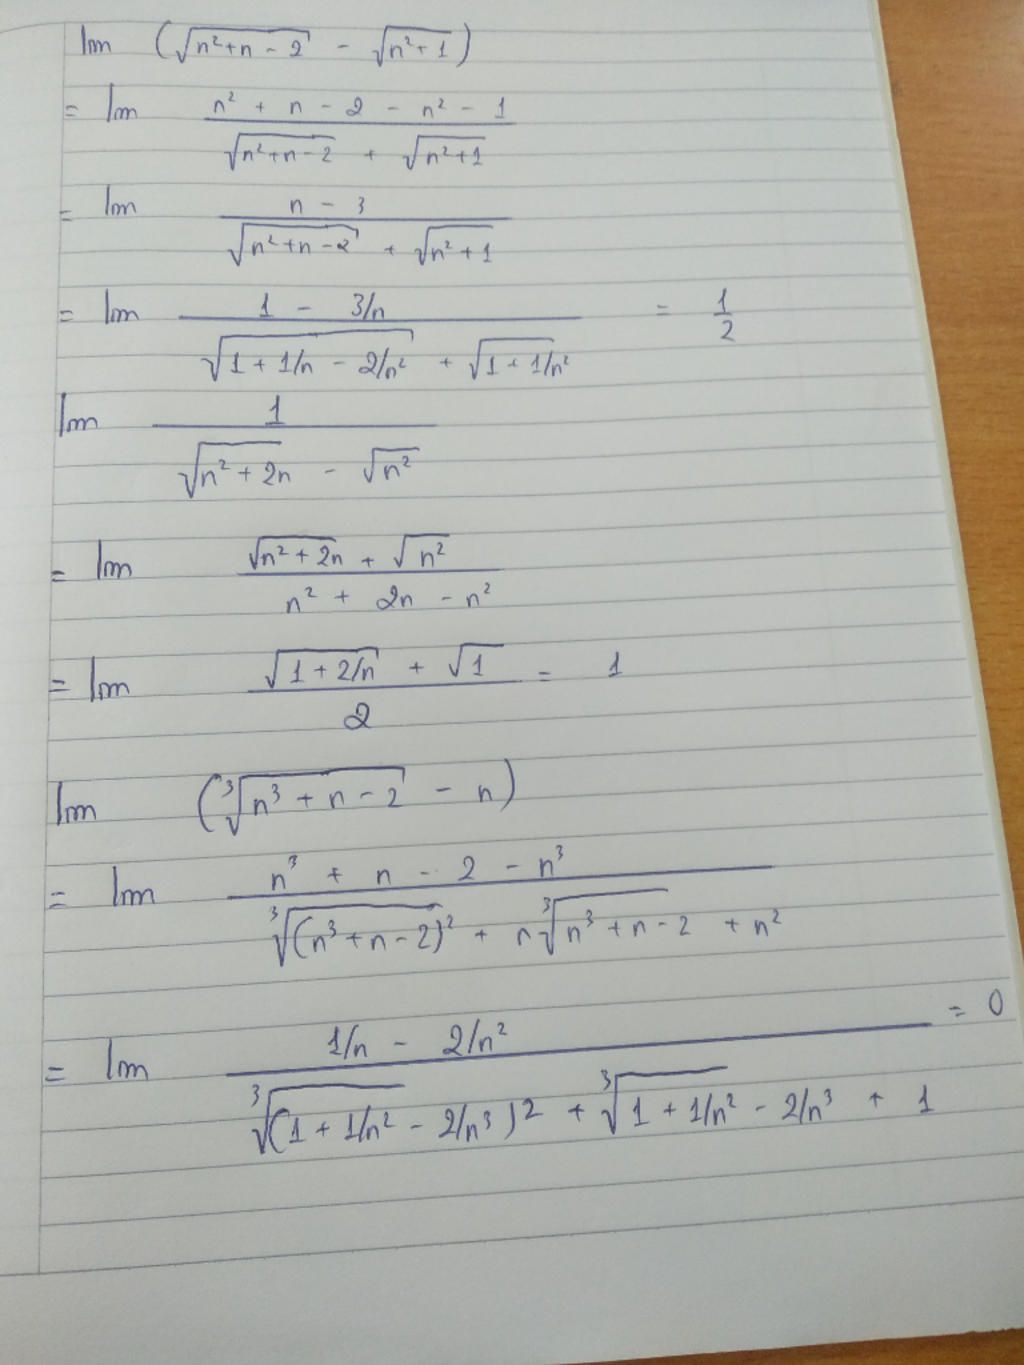 lim (√(n²+n-2) - √(n²+1))
= lim (n² + n - 2 - n² - 1)/(√(n²+n-2) + √(n²+1))
= lim (n - 3)/(√(n²+n-2) + √(n²+1))
= lim (1 - 3/n)/(√(1 + 1/n - 2/n²) + √(1 + 1/n²)) = 1/2
lim 1/(√(n²+2n) - √(n²))
= lim (√(n²+2n) + √(n²))/(n² + 2n - n²)
= lim (√(1+2/n) + √1)/2 = 1
lim (³√(n³+n-2) - n)
= lim (n³ + n - 2 - n³)/(³√((n³+n-2)²) + n³√(n³+n-2) + n²)
= lim (1/n - 2/n²)/(³√((1 + 1/n² - 2/n³)²) + ³√(1 + 1/n² - 2/n³) + 1) = 0